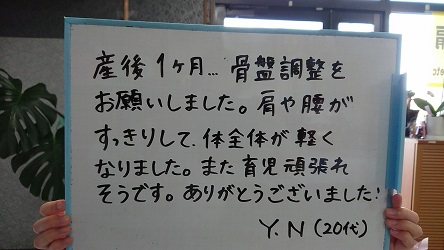 産後1ヶ月…骨盤調整を
お願いしました。肩や腰が
すっきりして、体全体が軽く
なりました。また育児頑張れ
そうです。ありがとうございました!
Y.N(20代)
肩